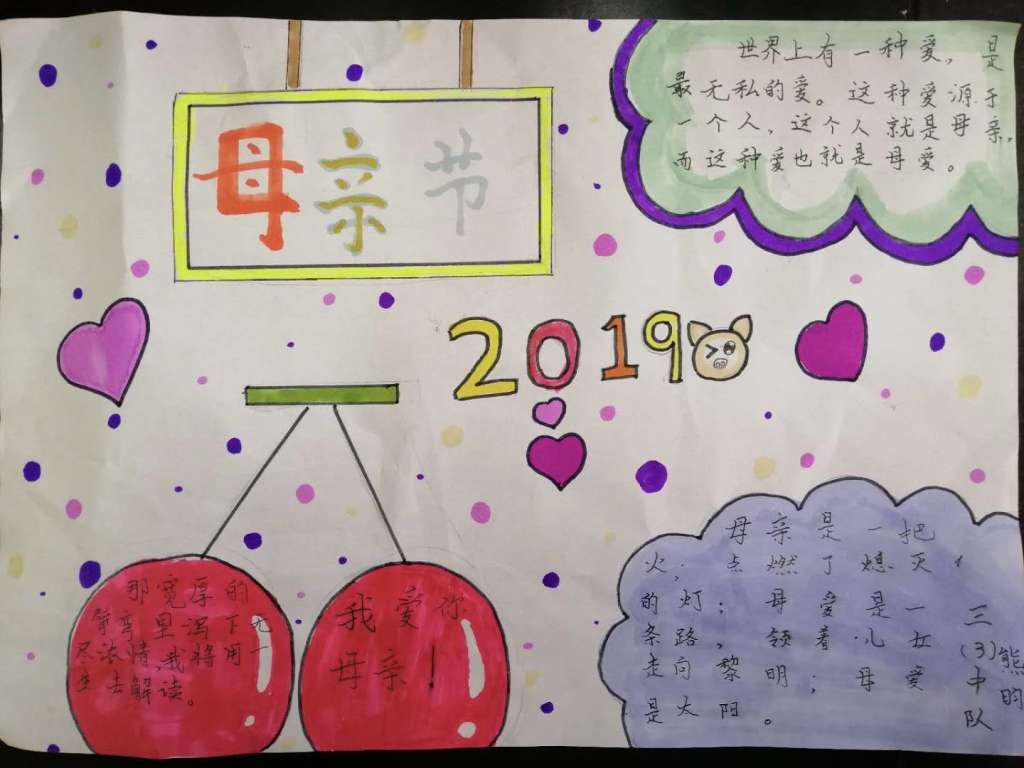 母亲节
世界上有一种爱，是
最无私的爱。这种爱源于
一个人，这个人就是母亲，
而这种爱也就是母爱。
2019
那宽厚的
臂弯里泻下无
尽浓情，我将用一
生去解读。
我爱你
母亲！
母亲是一把
火，点燃了熄灭
的灯；母爱是一
条路，领着儿女
走向黎明；母爱
是太阳。
三(3)中队
熊昀